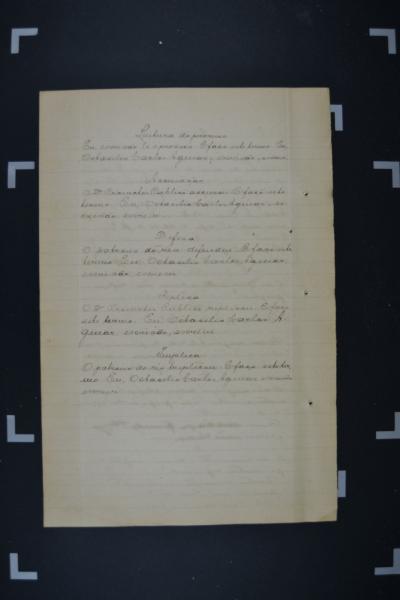 Leitura do processo
Eu, escrivão, li o processo. E faço este termo. Eu,
Octacilio Carlos Aguiar, escrivão, escrevi.
Accusação
O Dr. Promotor Publico accusou. E faço este
termo. Eu, Octacilio Carlos Aguiar, es-
crivão, escrevi.
Defesa
O patrono do réu defendeu. E faço este
termo. Eu, Octacilio Carlos Aguiar,
escrivão, escrevi.
Replica
O Dr. Promotor Publico replicou. E faço
este termo. Eu, Octacilio Carlos A-
guiar, escrivão, escrevi.
Treplica
O patrono do réu treplicou. E faço este ter-
mo. Eu, Octacilio Carlos Aguiar, escrivão
escrevi.